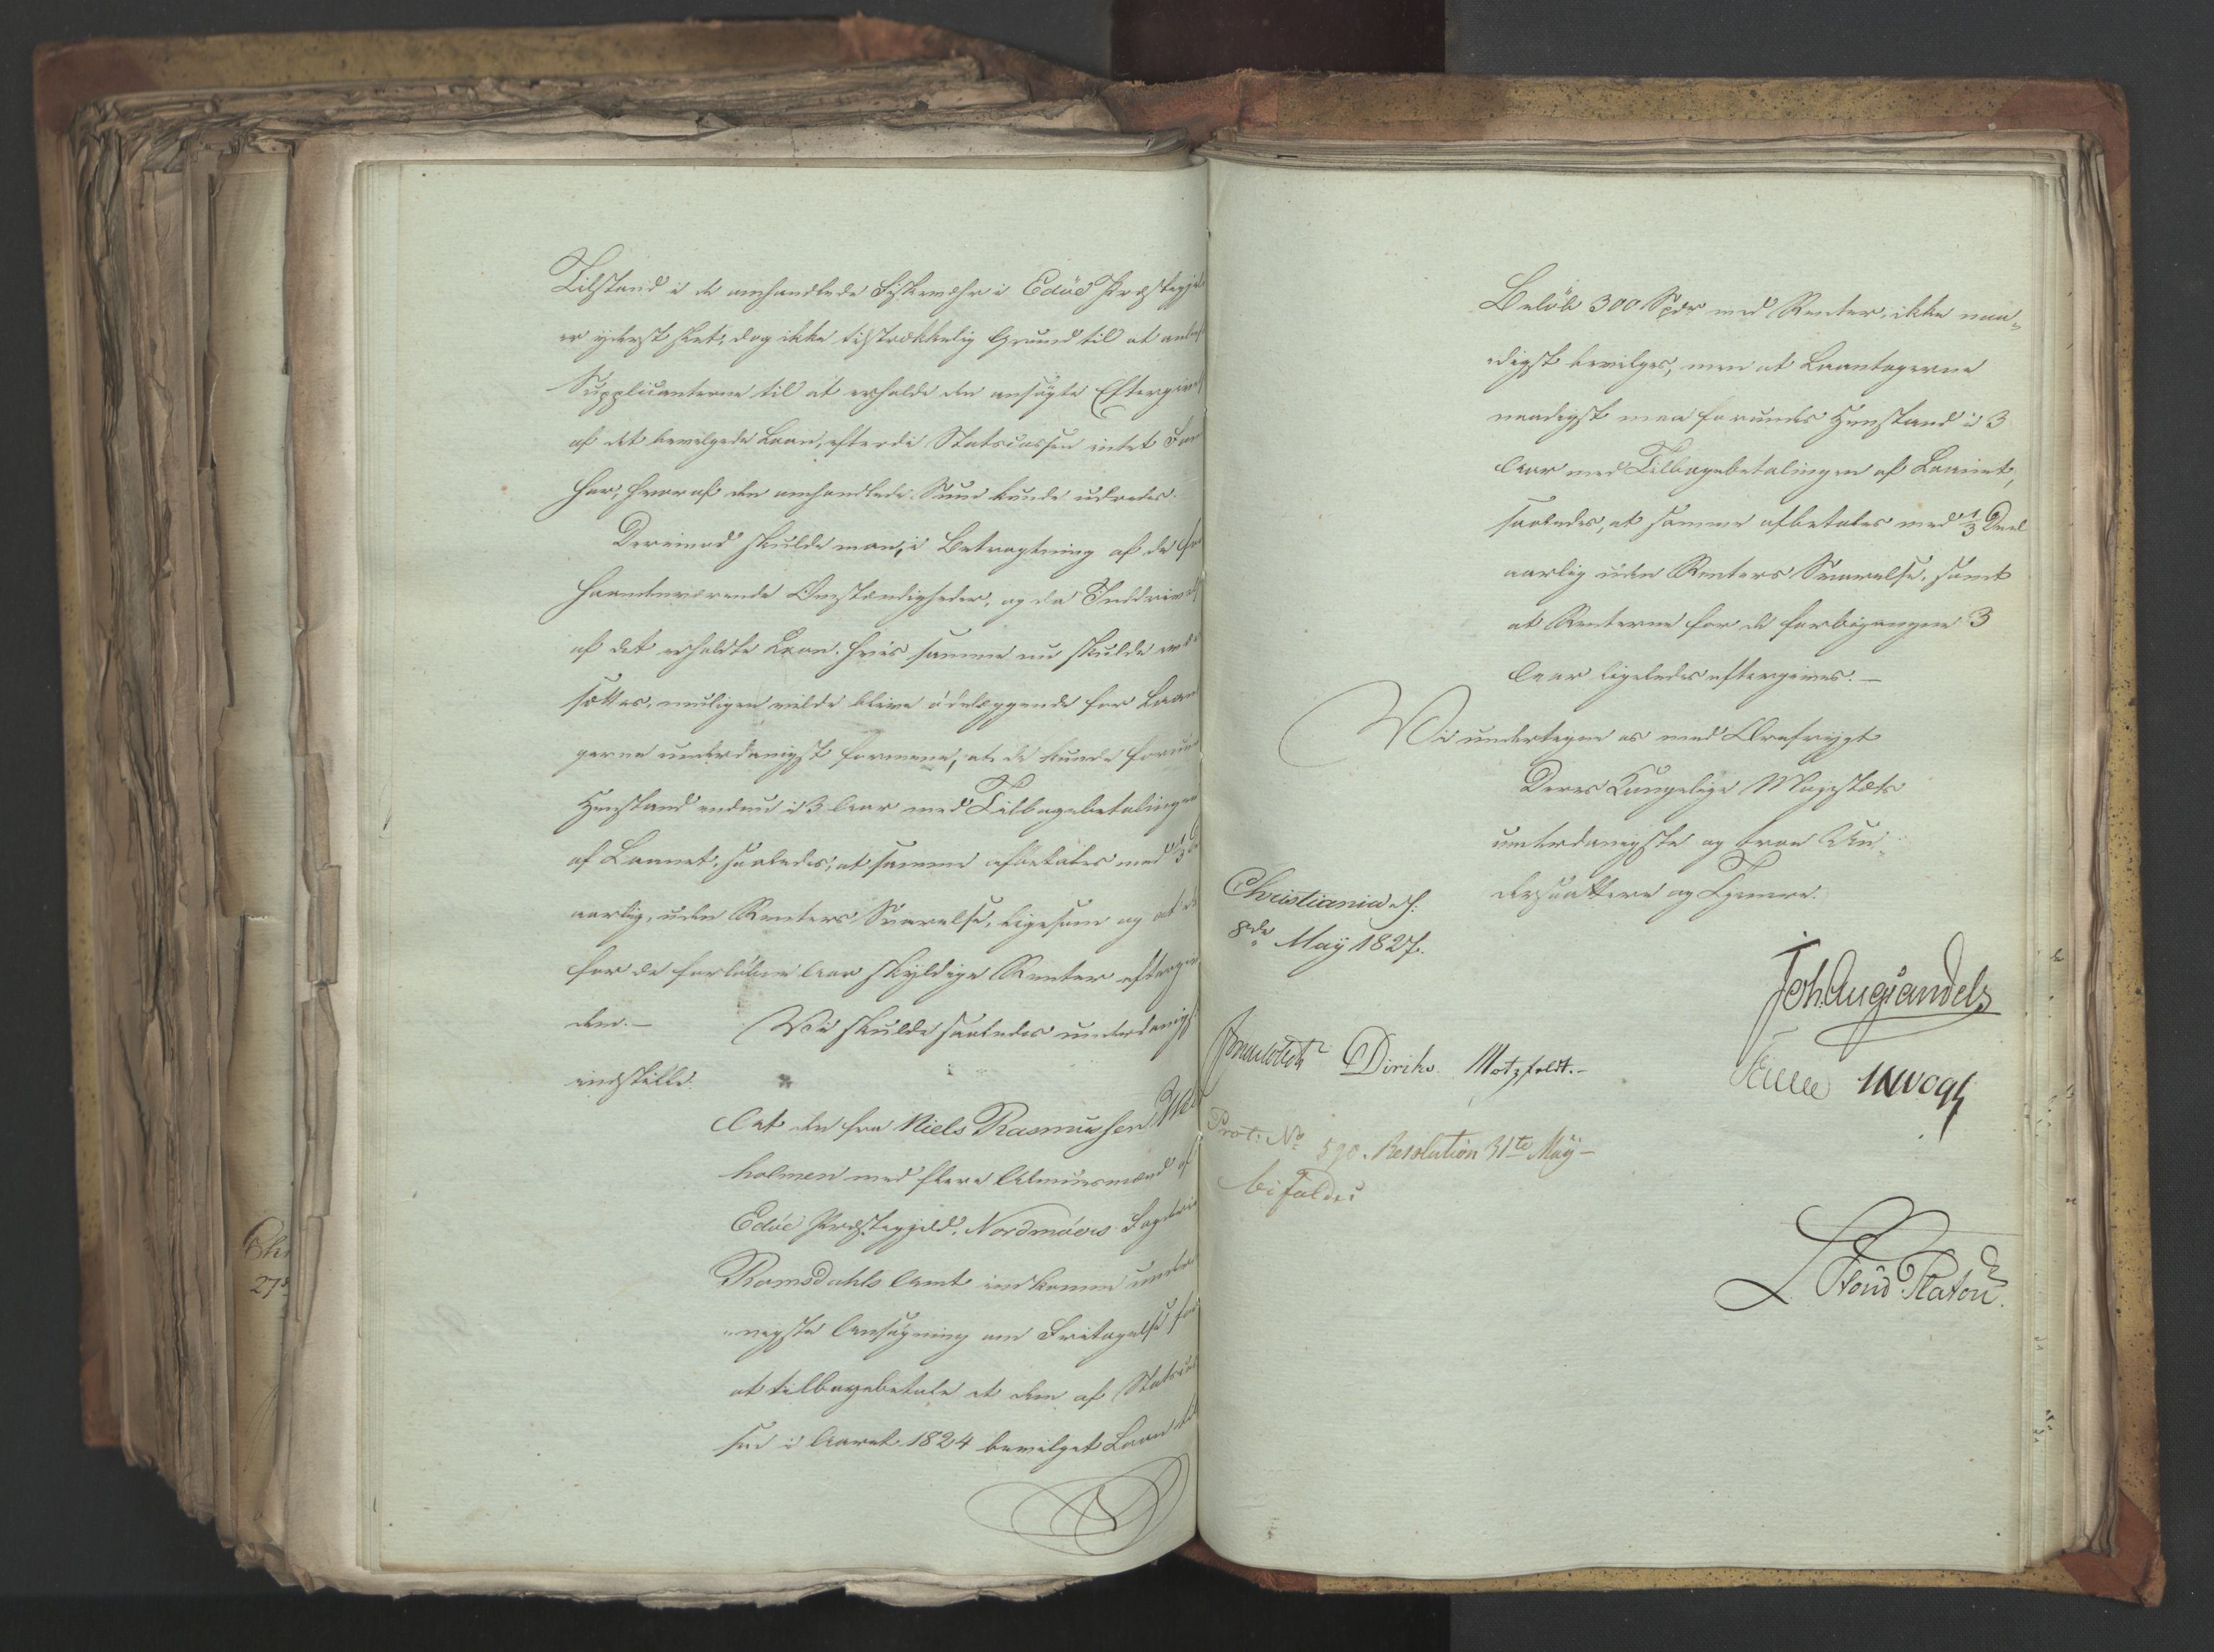 Tilstand i de omhandlede Fiskevær i Edöe Præstegjel
er yderst slet, dog ikke tilstrækkelig Grund til at anbef
Supplicanterne til at erholde den ansögte Eftergivel
af det bevilgede Laan, efterdi Statscassen intet Fon
har, hvoraf den omhandlede Sum kunde udredes.
Derimod skulde man, i Betragtning af de for
haandenværende Omstændigheder, og da Inddrivels
af det erholdte Laan, hvis samme nu skulde
sættes, muligen vilde blive ödelæggende for Laan
gerne underdanigst formene, at de kunde forun
Henstand endnu i 3 Aar med Tilbagebetalingen
af Laanet, saaledes, at samme afbetales med 1/3 D
aarlig, uden Renters Svarelse, ligesom og at de
for de forlöbne Aar skyldige Renter efterga
dem.— Vi skulde saaledes underdanigst
indstille:
At den fra Niels Rasmussen
holmen med flere Almuesmænd af
Edöe Præstegjeld, Nordmöers Fogderie
Romsdahls Amt indkomne underd
„nigste Ansögning om Fritagelse for
at tilbagebetale et dem af Statscas
sen i Aaret 1824 bevilget Laan til
Belöb 300 Spdr med Renter, ikke naa„
digst bevilges, men at Laantagerne
naadigst maa forundes Henstand i 3
Aar med Tilbagebetalingen af Laanet,
saaledes, at samme afbetales med 1/3 Deel
aarlig uden Renters Svarelse, samt
at Renterne for de forbigangne 3
Aar ligeledes eftergives.—
Vi undertegne os med Ærefrygt
Deres Kongelige Majestæts
underdanigste og troe Un„
dersaatter og Tjenere.
Christiania d:
8de May 1827.
Joh. Aug: Sandels
Diriks Motzfeldt.—
JHVogt
Prot: No 590. Resolution 31te May—
bifaldes
v Platou.